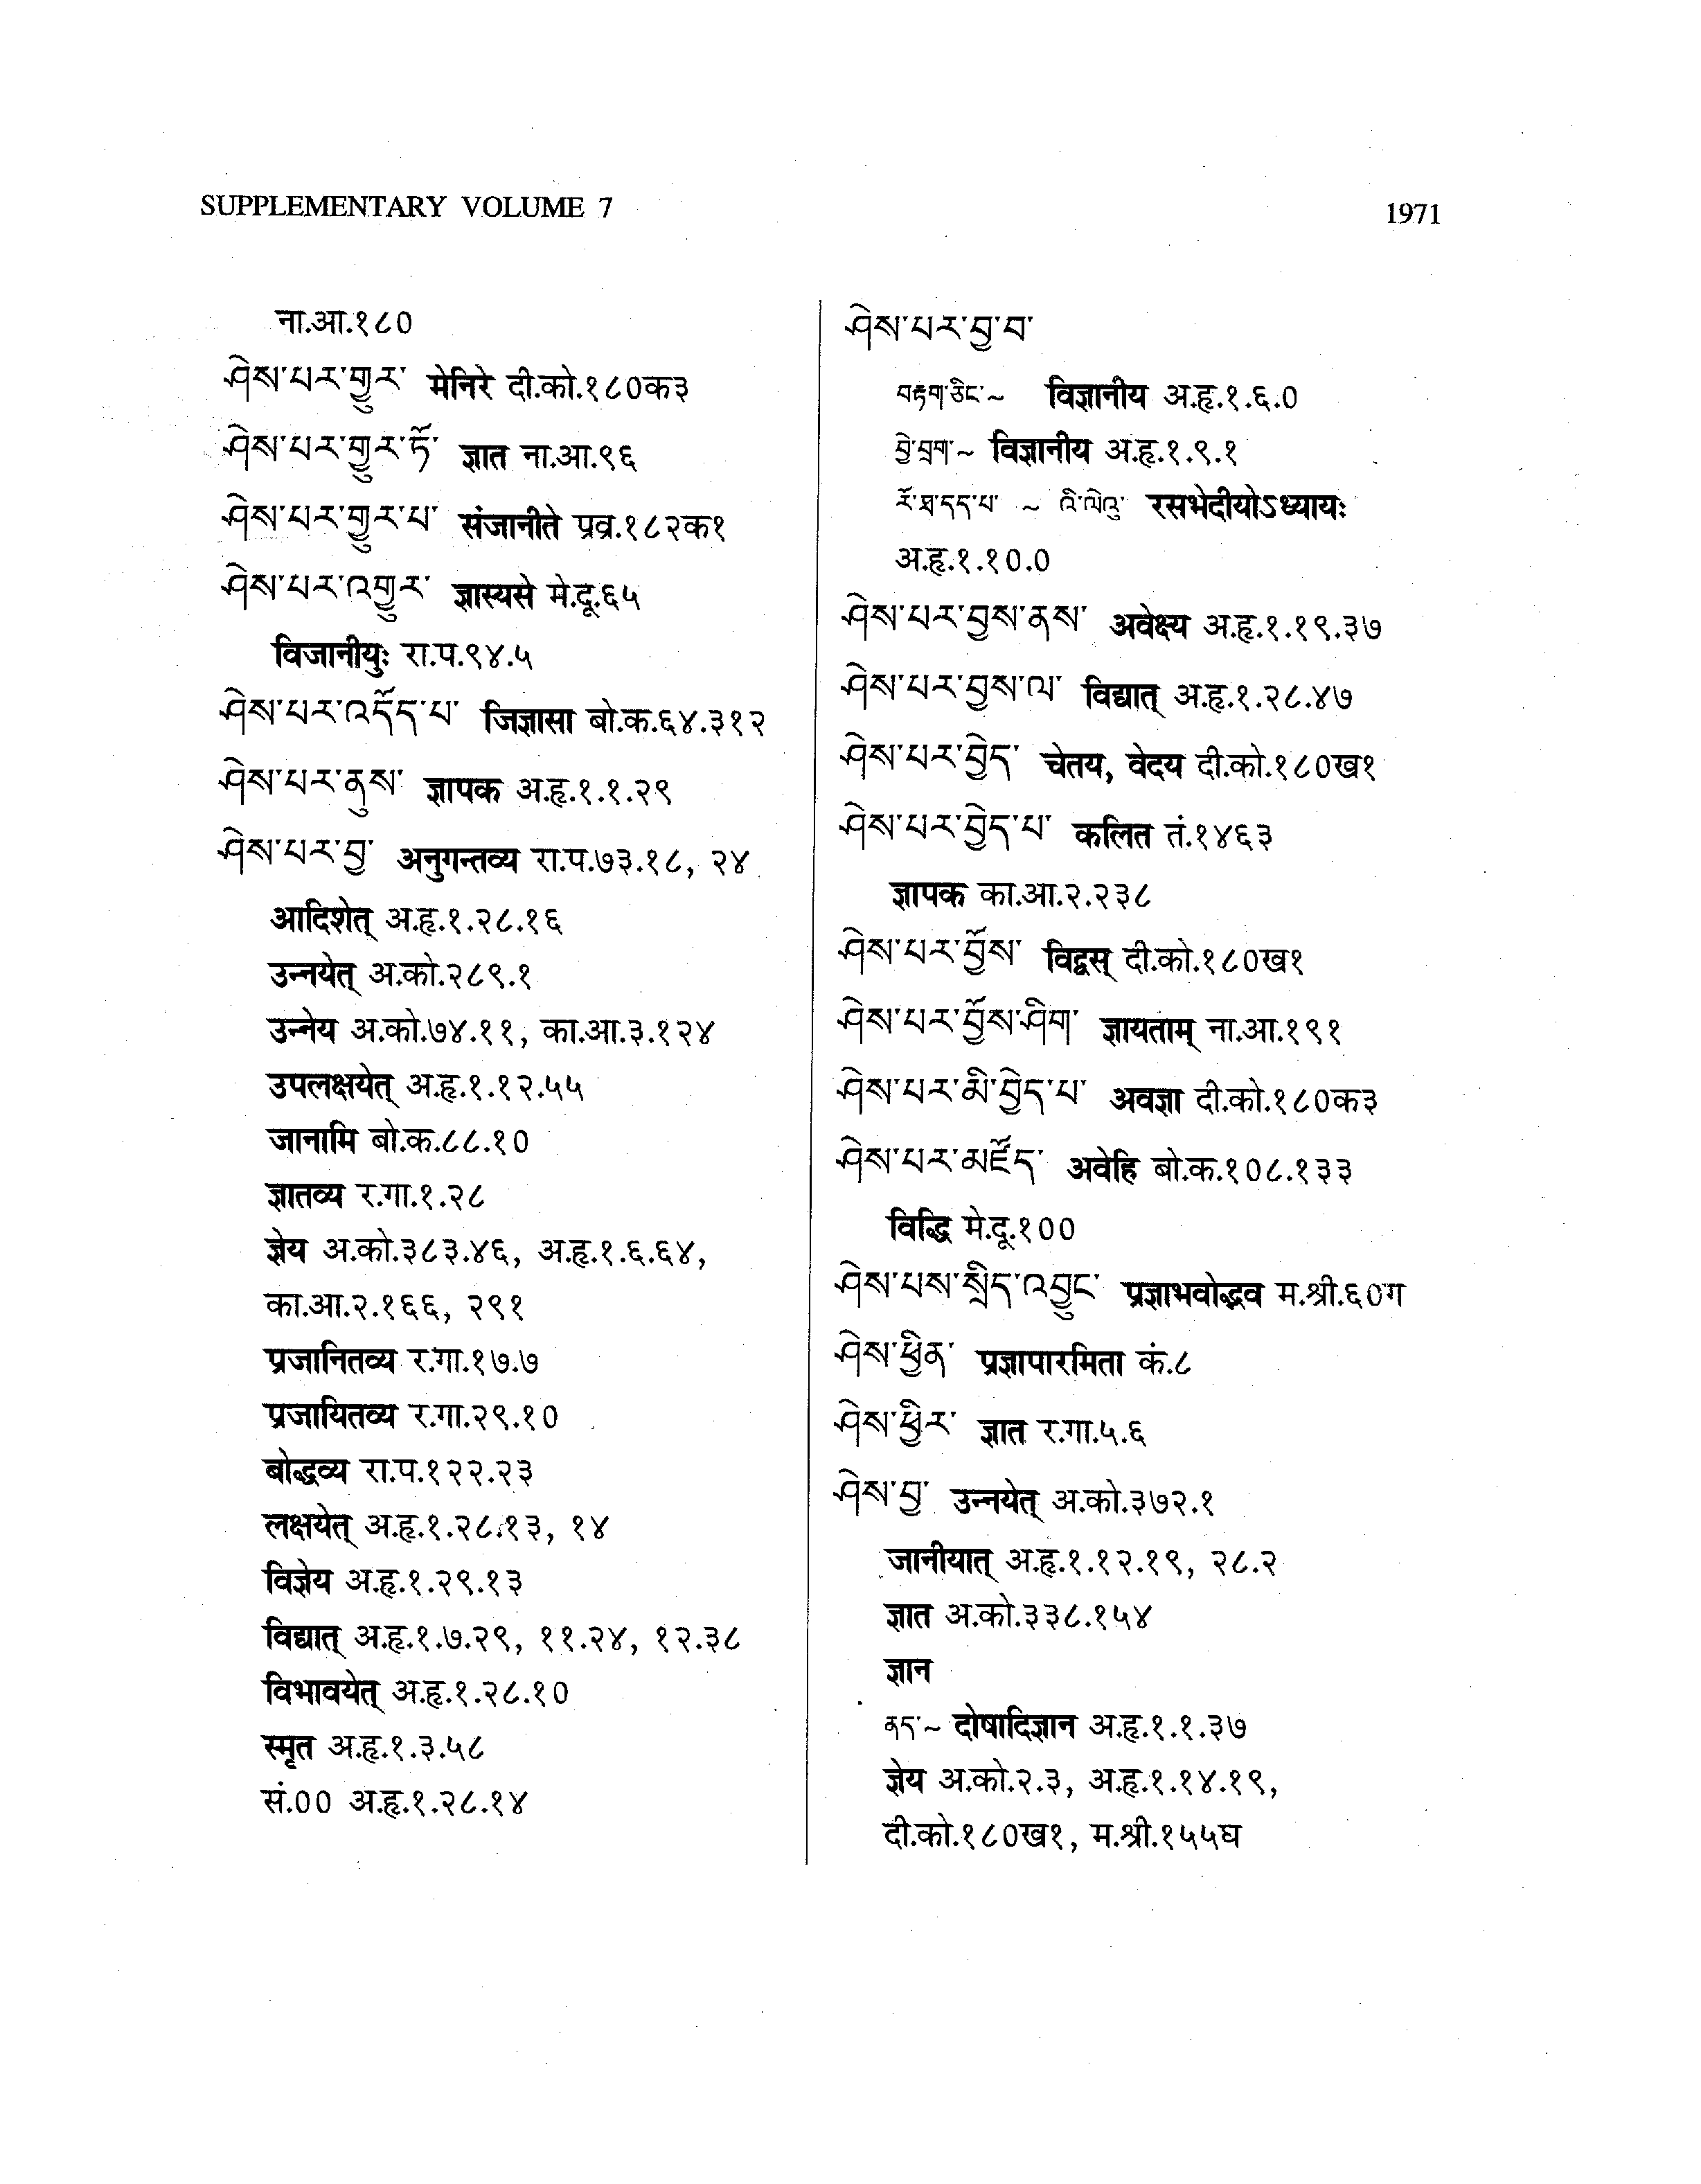 SUPPLEMENTARY VOLUME 7
1971
ना.आ.१८०
ཤེས་པར་གྱུར་ मेनिरे दी.को.१८०क३
ཤེས་པར་གྱུར་ཏོ་ ज्ञात ना.आ.९६
ཤེས་པར་གྱུར་པ་ संजानीते प्रव्र.१८२क१
ཤེས་པར་འགྱུར་ ज्ञास्यसे मे.दू.६५
विजानीयुः रा.प.९४.५
ཤེས་པར་འདོད་པ་ जिज्ञासा बो.क.६४.३१२
ཤེས་པར་ནུས་ ज्ञापक अ.हृ.१.१.२९
ཤེས་པར་བྱ་ अनुगन्तव्य रा.प.७३.१८, २४
आदिशेत् अ.हृ.१.२८.१६
उन्नयेत् अ.को.२८९.१
उन्नेय अ.को.७४.११, का.आ.३.१२४
उपलक्षयेत् अ.हृ.१.१२.५५
जानामि बो.क.८८.१०
ज्ञातव्य र.गा.१.२८
ज्ञेय अ.को.३८३.४६, अ.हृ.१.६.६४,
का.आ.२.१६६, २९१
प्रजानितव्य र.गा.१७.७
प्रजायितव्य र.गा.२९.१०
बोद्धव्य रा.प.१२२.२३
लक्षयेत् अ.हृ.१.२८.१३, १४
विज्ञेय अ.हृ.१.२९.१३
विद्यात् अ.हृ.१.७.२९, ११.२४, १२.३८
विभावयेत् अ.हृ.१.२८.१०
स्मृत अ.हृ.१.३.५८
सं.०० अ.हृ.१.२८.१४
ཤེས་པར་བྱ་བ་
བརྟག་ཅིང་~ विज्ञानीय अ.हृ.१.६.०
བྱེ་བྲག་~ विज्ञानीय अ.हृ.१.९.१
རོ་ཐ་དད་པ་ ~ འི་ལེའུ་ रसभेदीयोऽध्यायः
अ.हृ.१.१०.०
ཤེས་པར་བྱས་ནས་ अवेक्ष्य अ.हृ.१.१९.३७
ཤེས་པར་བྱས་ལ་ विद्यात् अ.हृ.१.२८.४७
ཤེས་པར་བྱེད་ चेतय, वेदय दी.को.१८०ख१
ཤེས་པར་བྱེད་པ་ कलित तं.१४६३
ज्ञापक का.आ.२.२३८
ཤེས་པར་བྱོས་ विद्वस् दी.को.१८०ख१
ཤེས་པར་བྱོས་ཤིག་ ज्ञायताम् ना.आ.१९१
ཤེས་པར་མི་བྱེད་པ་ अवज्ञा दी.को.१८०क३
ཤེས་པར་མཛོད་ अवेहि बो.क.१०८.१३३
विद्धि मे.दू.१००
ཤེས་པས་སྲིད་འབྱུང་ प्रज्ञाभवोद्भव म.श्री.६०ग
ཤེས་ཕྱིན་ प्रज्ञापारमिता कं.८
ཤེས་ཕྱིར་ ज्ञात र.गा.५.६
ཤེས་བྱ་ उन्नयेत् अ.को.३७२.१
जानीयात् अ.हृ.१.१२.१९, २८.२
ज्ञात अ.को.३३८.१५४
ज्ञान
ནད་~ दोषादिज्ञान अ.हृ.१.१.३७
ज्ञेय अ.को.२.३, अ.हृ.१.१४.१९,
दी.को.१८०ख१, म.श्री.१५५घ